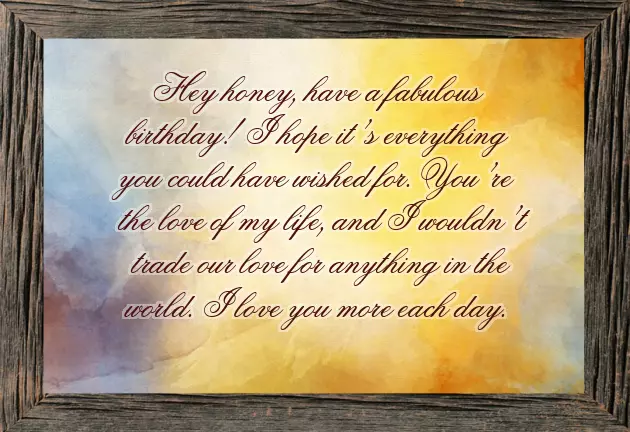 Hey honey, have a fabulous
birthday! I hope it's everything
you could have wished for. You're
the love of my life, and I wouldn't
trade our love for anything in the
world. I love you more each day.